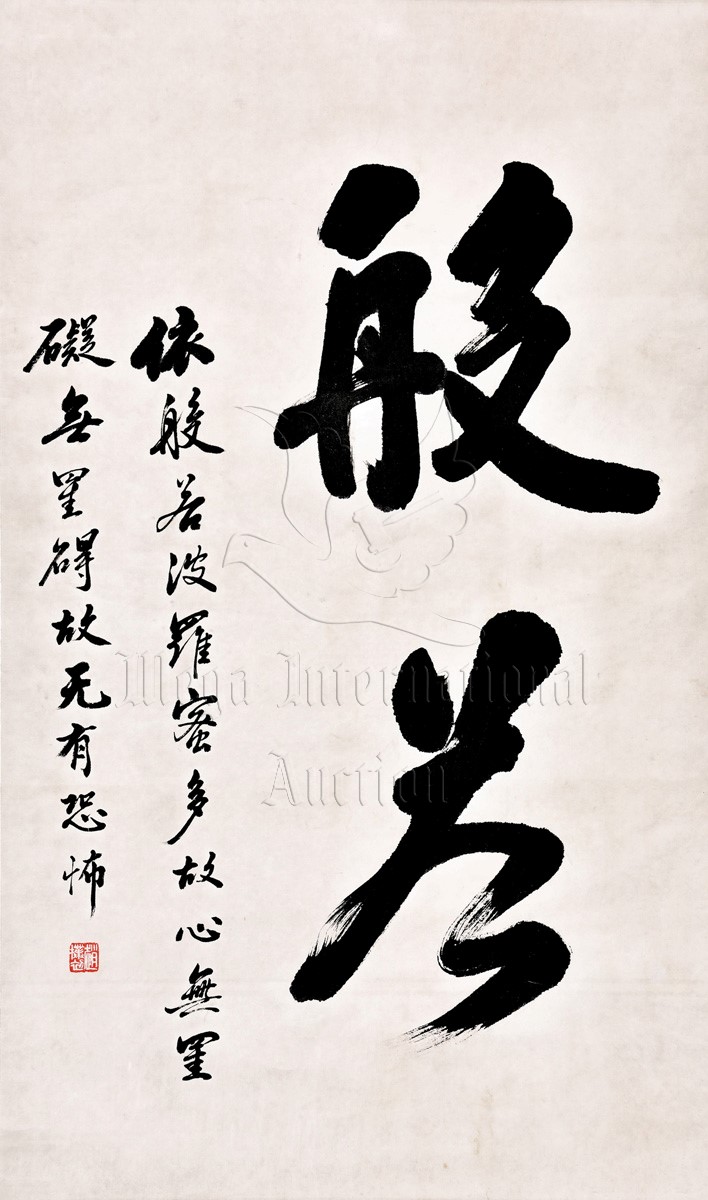 般若
依般若波羅蜜多故心無罣
礙無罣碍故无有恐怖
趙樸初
Mega International
Auction